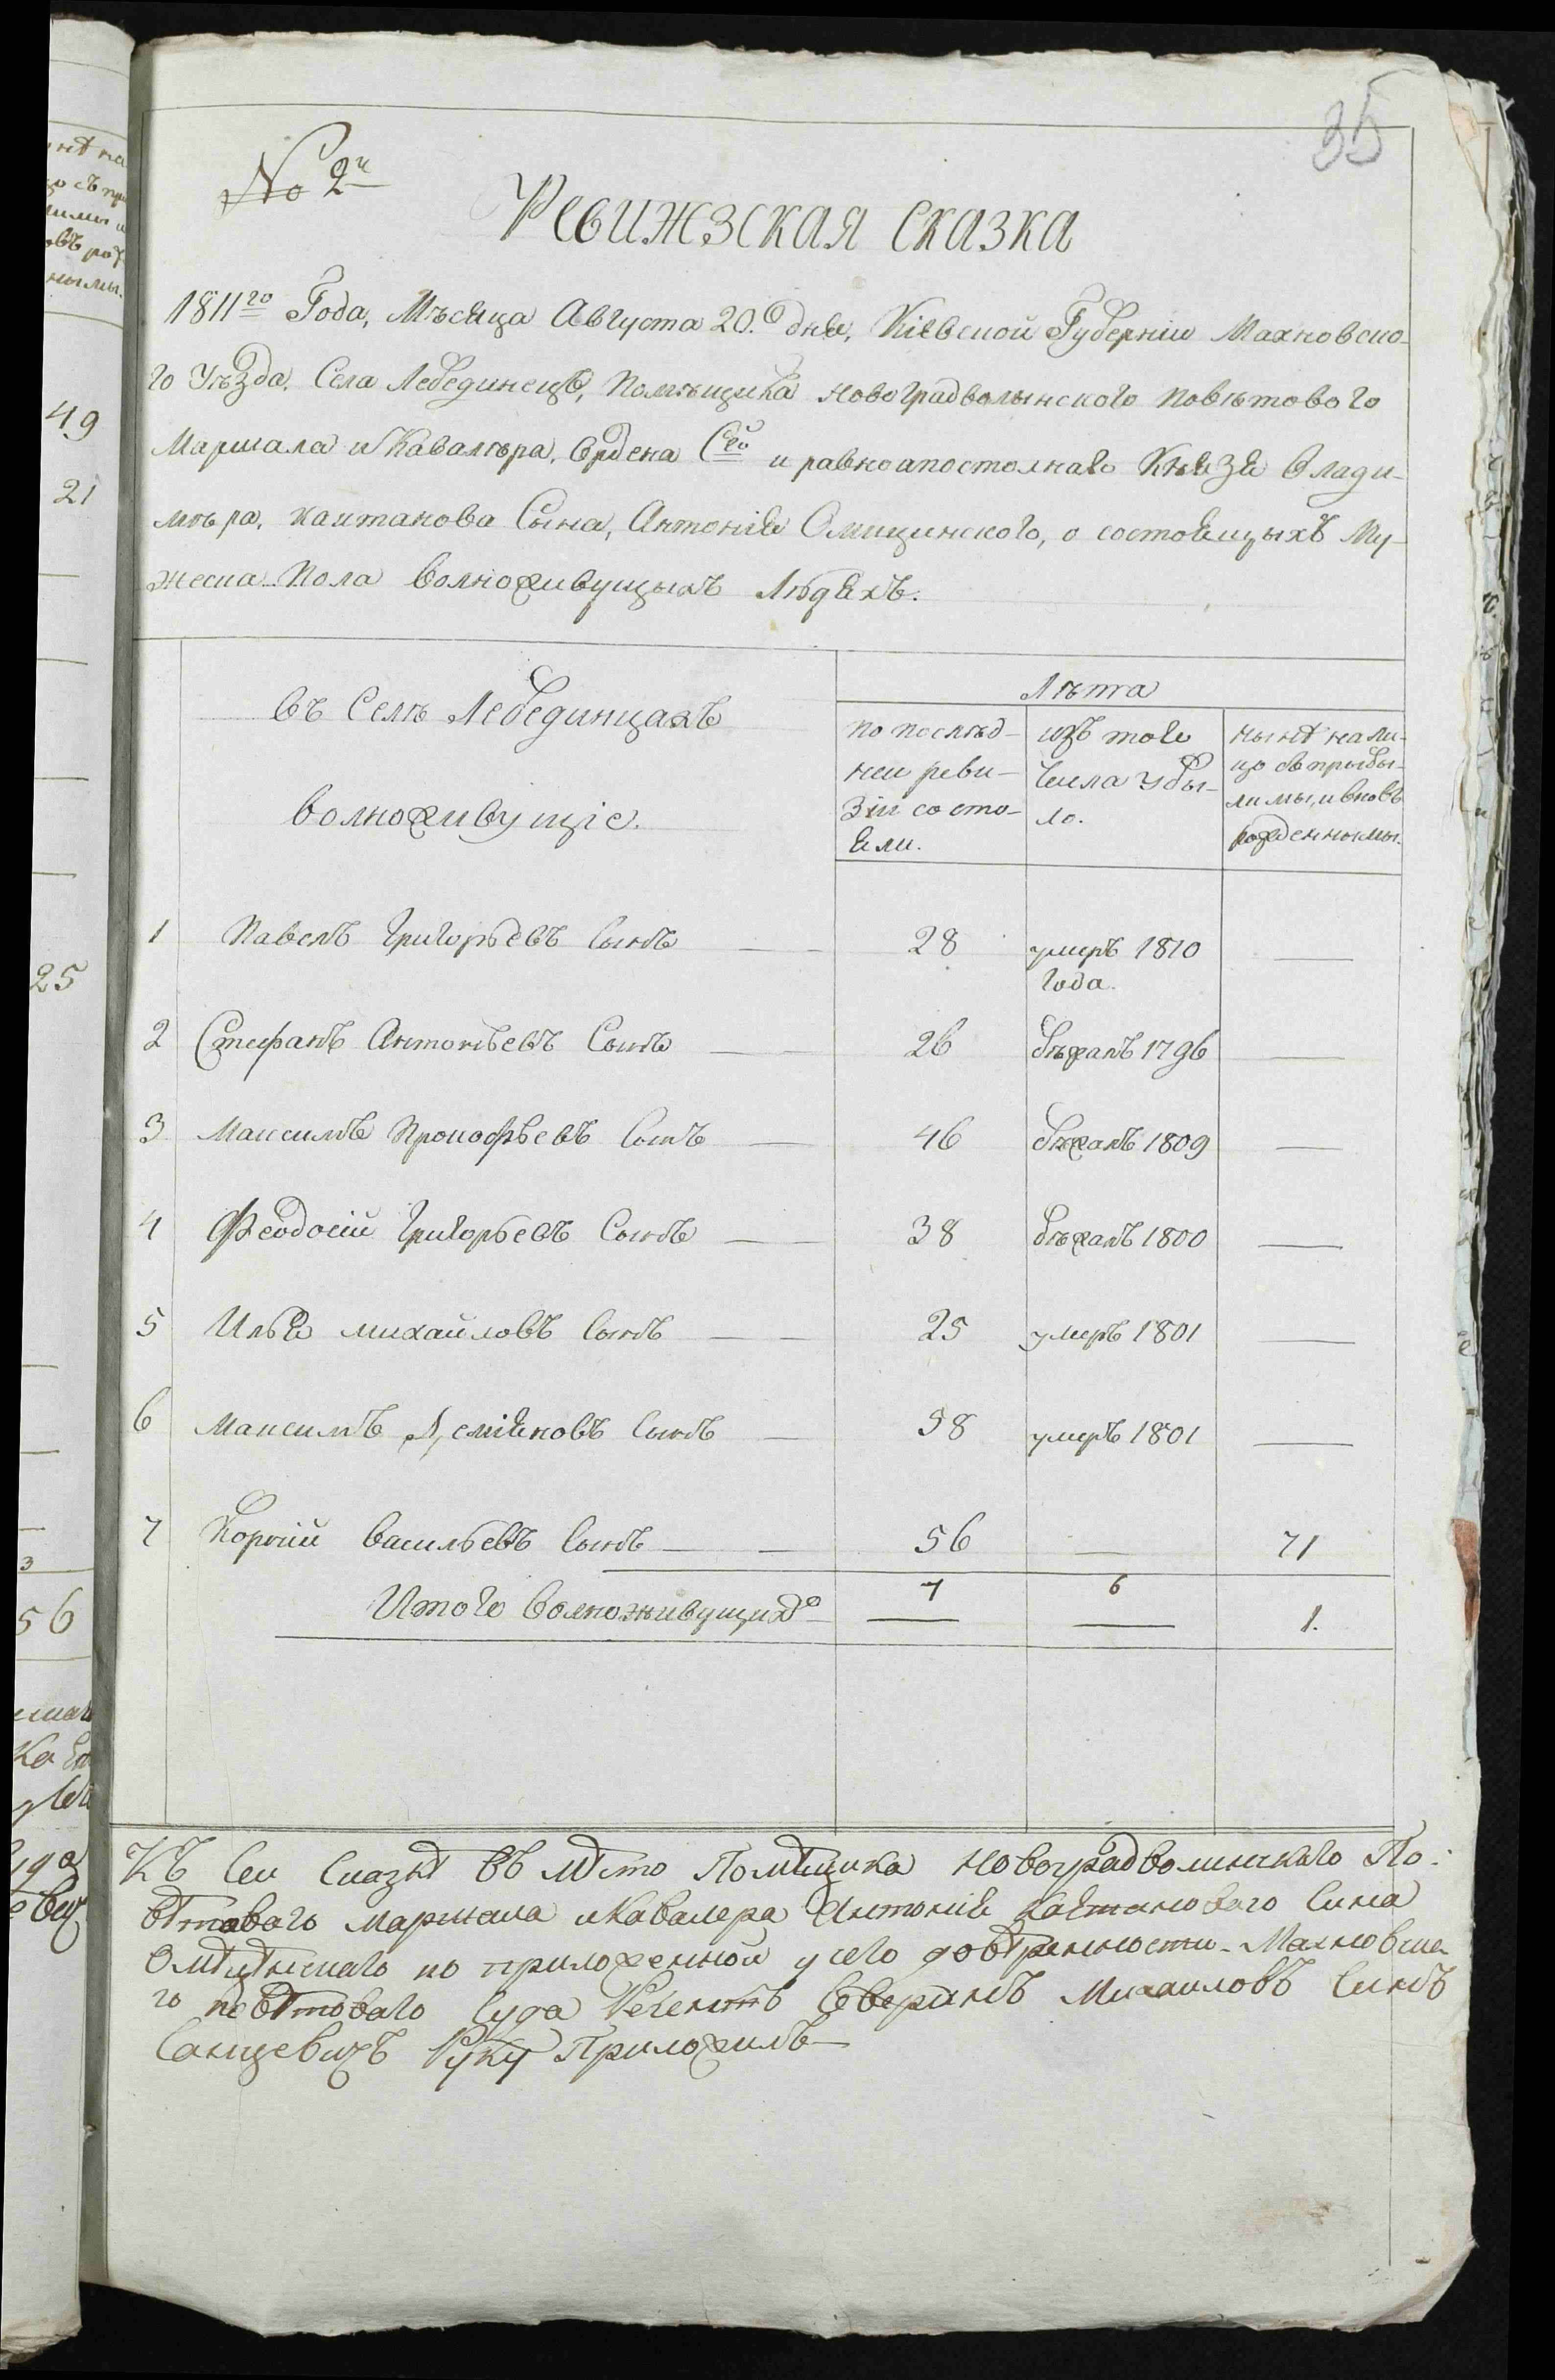 35
№ 2й
Ревижзская сказка
1811го Года, Мѣсяца Августа 20.о дня, Кіевской Губерніи Махновско-
го Уѣзда, Села Лебединецъ, Помѣщика Новоградволынского Повѣтового
Маршала и Кавалѣра, Ордена Сго и равноапостолнаго Князя Влади-
мѣра, каитанова Сына, Антонія Омицинского, о состоящыхъ Му-
жеска Пола волноживущыхъ Людяхъ.
въ Селѣ Лебединцахъ
волноживущіе.
Лѣта
по послѣд-
ней реви-
зіи состо-
яли.
изъ того
числа убы-
ло.
нынѣ нали-
цо съ прыбы-
лимы, и вновъ
рожденнымы.
1 Павелъ Григорьевъ Сынъ 28 умеръ 1810
года.
2 Стефанъ Антоньевъ Сынъ 26 бѣжалъ 1796
3 Максимъ Прокофьевъ Сынъ 46 бѣжалъ 1809
4 Феодосій Григорьевъ Сынъ 38 бѣжалъ 1800
5 Илья михайловъ Сынъ 25 умеръ 1801
6 Максимъ Деміяновъ Сынъ 58 умеръ 1801
7 Корній Васильевъ Сынъ 56 71
Итого волноживущихъ 7 6 1.
Къ сеи Сказкѣ въ мѣсто Помѣщика Новоградволинскаго По-
вѣтоваго Маршала и Кавалера Антонія Каѣтановаго Сина
Омѣцѣнскаго по приложенной у сего довѣренности Махновска-
го повѣтоваго Суда Регентъ Северинъ Михаиловъ Синъ
Руку Приложилъ
49
21
25
3
56